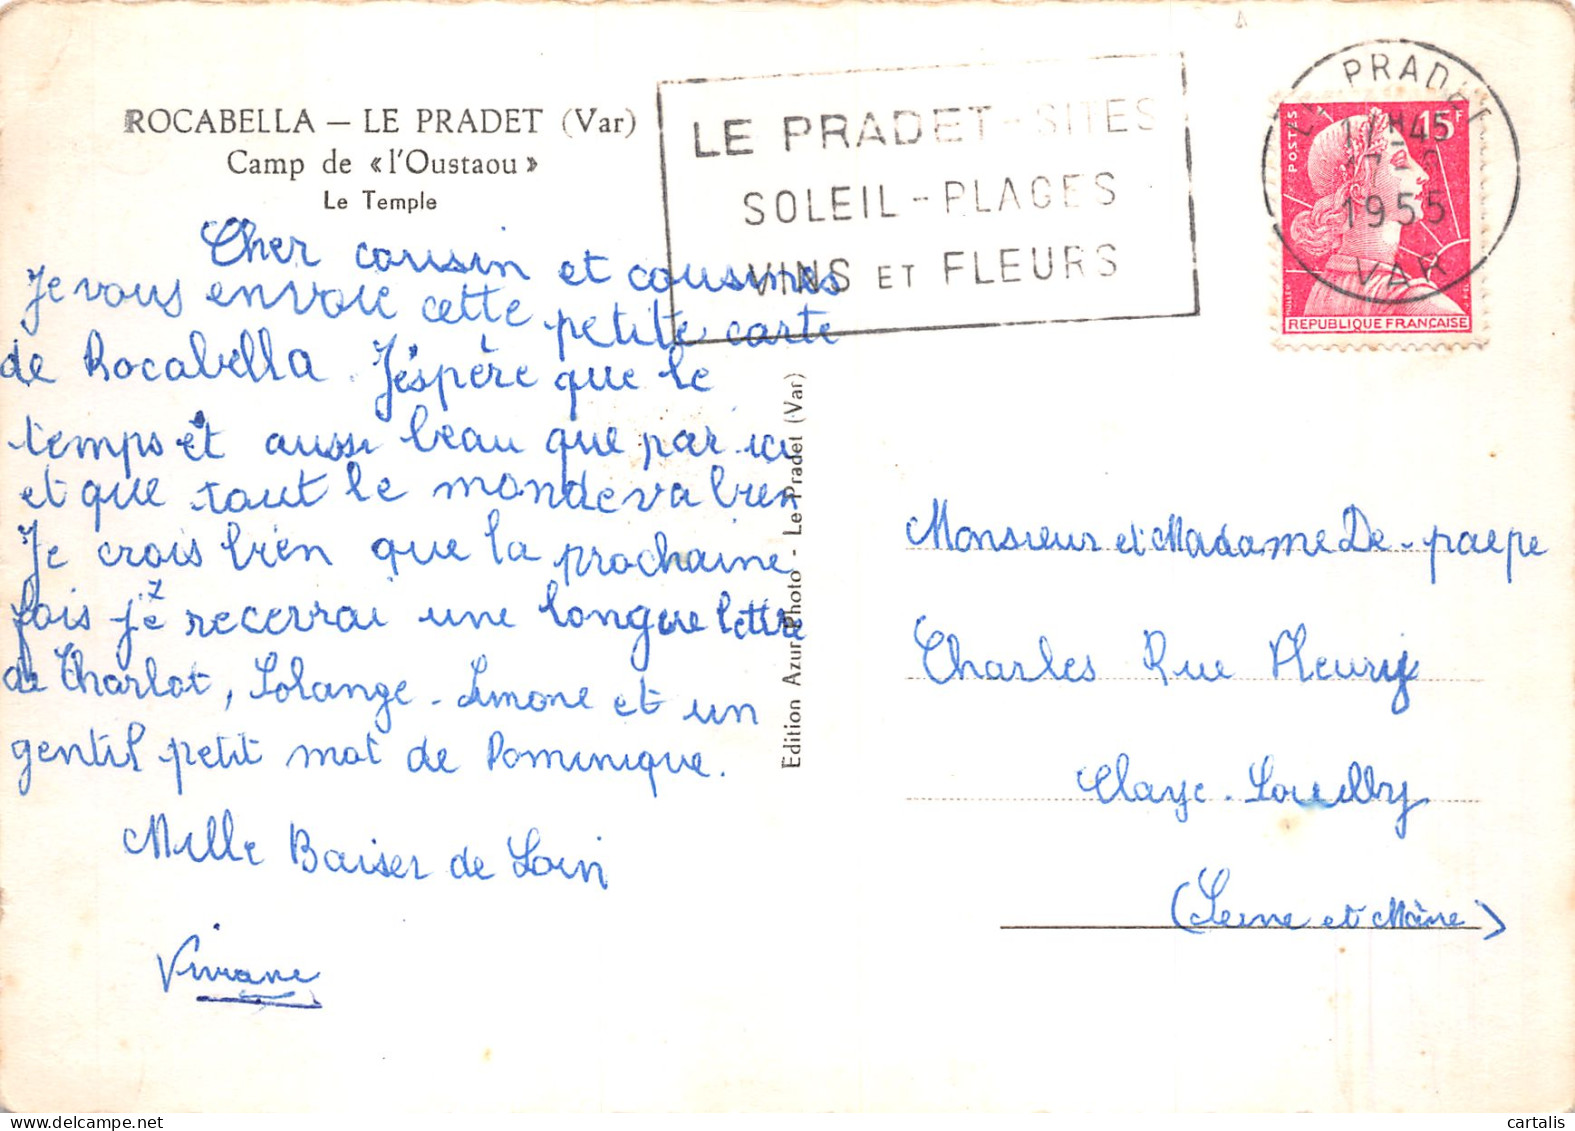 ROCABELLA — LE PRADET (Var)
Camp de « l'Oustaou »
Le Temple
Cher cousin et cousines
Je vous envoie cette petite carte
de Rocabella. J'éspère que le
temps et aussi beau que par ici
et que tout le monde va bien
Je crois bien que la prochaine
fois je recevrai une longue lettre
de Charlot, Solange. Simone et un
gentil petit mot de Dominique.
Mille Baiser de Loin
Viviane
Edition Azur-Photo - Le Pradet (Var)
LE PRADET - SITES
SOLEIL - PLAGES
VINS ET FLEURS
LE PRADET
17H45
1955
VAR
POSTES
15F
REPUBLIQUE FRANÇAISE
Monsieur et Madame De-paepe
Charles Rue Fleury
Claye. Souilly
(Seine et Marne)
cartalis